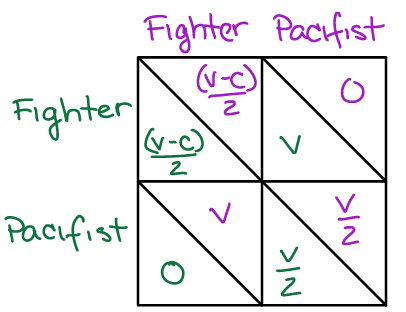 Fighter Pacifist
Fighter (v-c)/2 (v-c)/2 0 v
Pacifist v 0 v/2 v/2